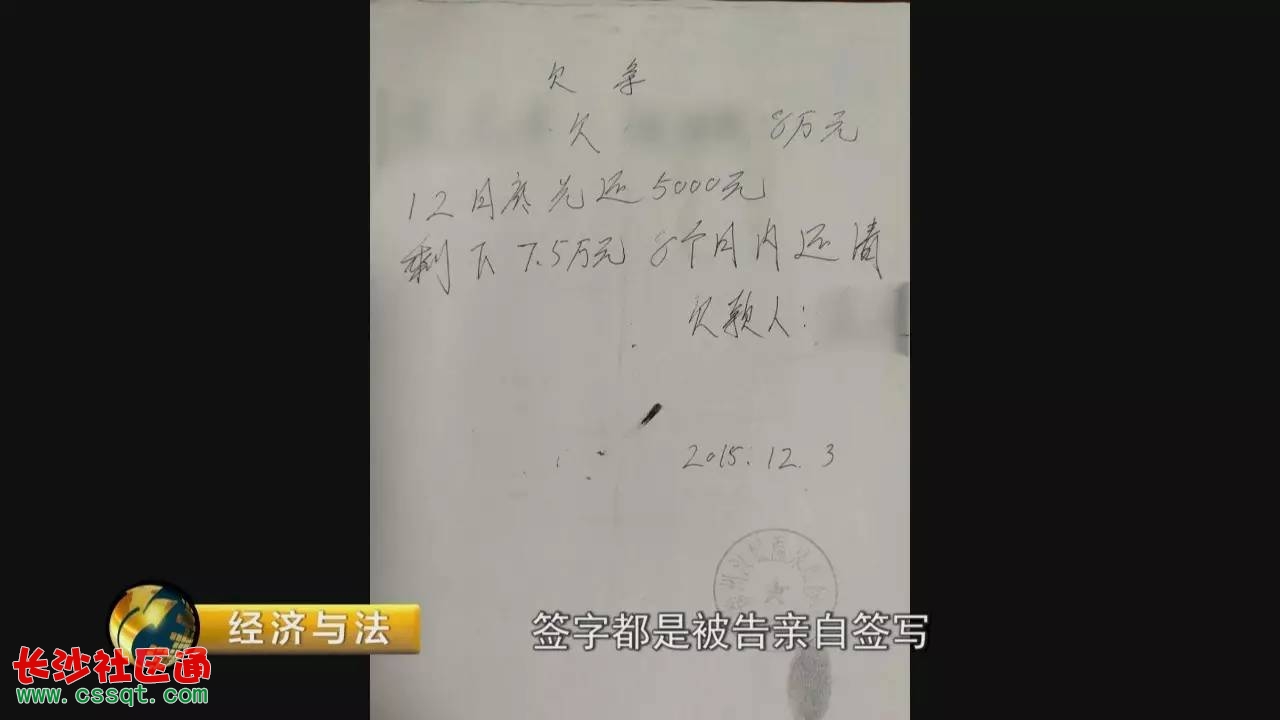 欠条
欠 8万元
12月底先还5000元
剩下7.5万元8个月内还清
欠款人：
2015.12.3
经济与法
签字都是被告亲自签写
长沙社区通
www.cssqt.com